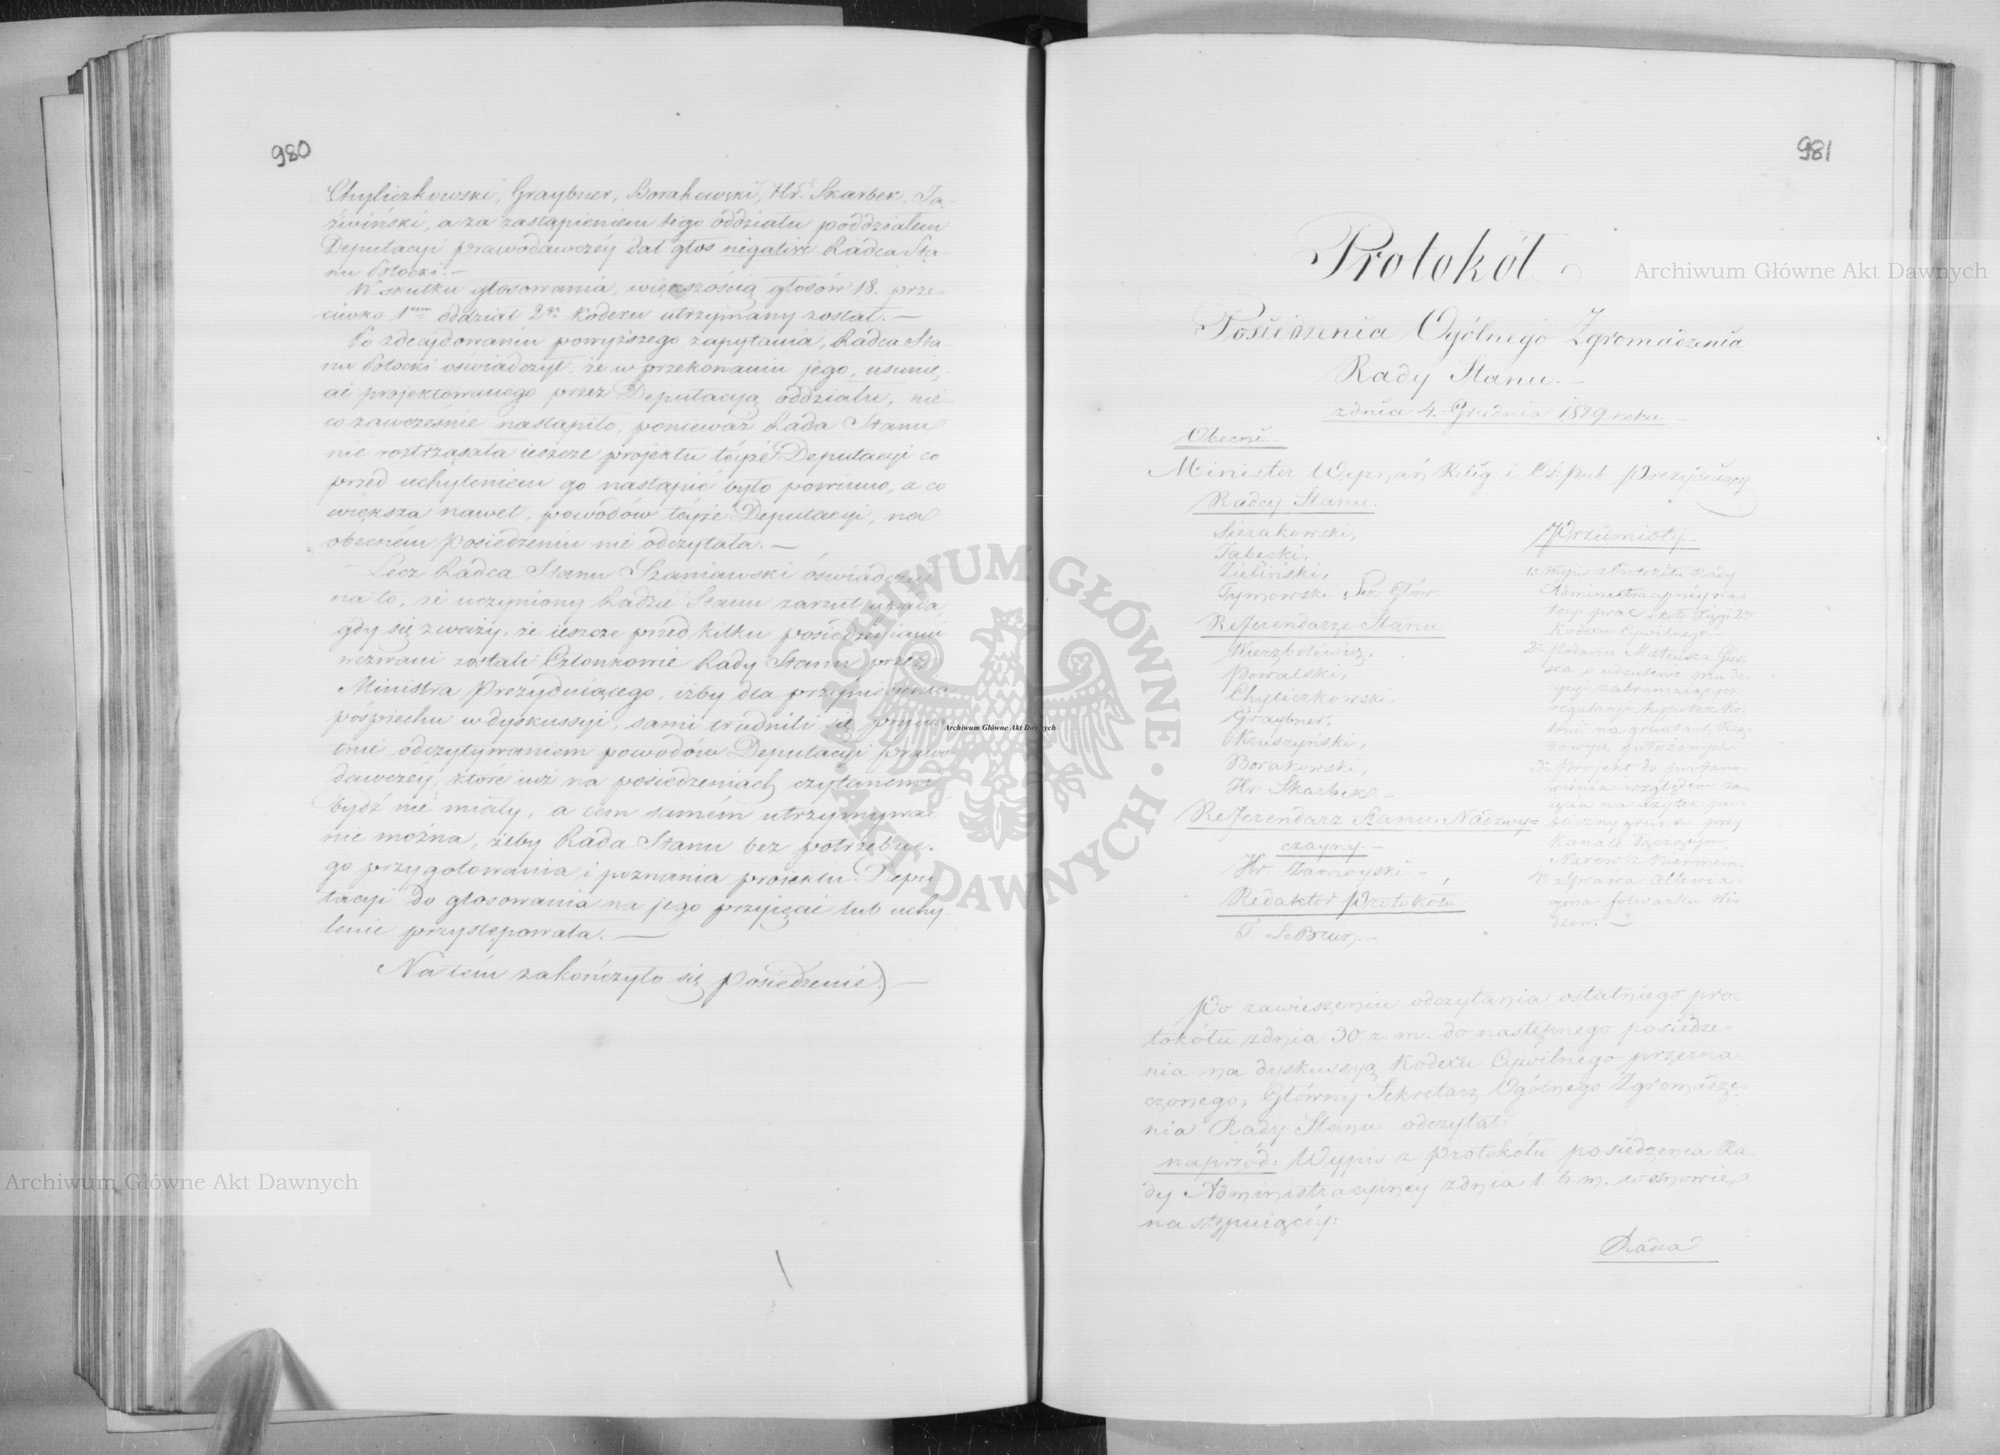 980
Chyliczkowski, Graybner, Borakowski, Hr. Skarbek, Ja-
żwiński, a za zastąpieniem tego oddziału poddziałem
Deputacyi prawodawczéy dał głos negative Radca Sta-
nu Potocki.-
W skutku głosowania, większością głosów 18. prze-
ciwko 1nemu oddział 2gi Kodexu utrzymany został.-
Po zdecydowaniu powyższego zapytania, Radca Sta-
nu Potocki oświadczył, że w przekonaniu jego, usunię-
cie projektowanego przez Deputacyą oddziału, nie-
co zawcześnie nastąpiło, ponieważ Rada Stanu
nie roztrząsała ieszcze projektu téyże Deputacyi co
przed uchyleniem go nastąpić było powinno, a co
większa nawet, powodów téyże Deputacyi, na
obecném posiedzeniu nie odczytała.-
Lecz Radca Stanu Szaniawski oświadczył
na to, że uczyniony Radzie Stanu zarzut upada,
gdy się zważy, że ieszcze przed kilku posiedzeniami
wezwani zostali Członkowie Rady Stanu przez
Ministra Prezyduiącego, iżby dla przyniesienia
pośpiechu w dyskussyi, sami trudnili się prywa-
tnie odczytywaniem powodów Deputacyi Prawo-
dawczéy, które iuż na posiedzeniach czytanemi
bydź nie miały, a tém samém utrzymywać
nie można, żeby Rada Stanu bez potrzebne-
go przygotowania i poznania projektu Depu-
tacyi do głosowania na jego przyjęcie lub uchy-
lenie przystępowała.-
Na tém zakończyło się posiedzenie.)-
981
Protokół
Posiedzenia Ogólnego Zgromadzenia
Rady Stanu.-
z dnia 4. Grudnia 1829 roku.-
Obecni.-
Minister Wyznań Relig. i Oś. Pub. Prezyduiący
Radcy Stanu.
Sierakowski,
Tabęcki,
Zieliński,
Tymowski, Sek. Głów.
Referendarze Stanu
Wierzbołowicz,
Kowalski,
Chyliczkowski,
Graybner,
Kruszyński,
Borakowski,
Hr. Skarbek.-
Referendarz Stanu Nadzwy-
czayny.-
Hr. Zamoyski.-
Redaktor Protokółu
T. Le Brun.-
Przedmioty.-
1o Wypis z Protokółu Rady
Administracyinéy wzglę-
dem prac około Xięgi 2éy
Kodexu Cywilnego.-
2o Podanie Mateusza Gór-
sza o udzielenie pnia de-
cyzyi zabraniaiących
regulacyi hypotek ko-
lonii na gruntach Rzą-
dowych położonych
3o Projekt do postano-
wienia względem za-
ięcia na użytek pu-
bliczny gruntu przy
Kanale łączącym
Narew z Niemnem.
4o Sprawa Allewia-
cyjna folwarku Wi-
dzew.-
Po zawieszeniu odczytania ostatniego pro-
tokółu z dnia 30 z. m. do następnego posiedze-
nia na dyskussyą Kodexu Cywilnego przezna-
czonego, Główny Sekretarz Ogólnego Zgromadze-
nia Rady Stanu odczytał:
naprzód: Wypis z protokółu posiedzenia Ra-
dy Administracyinéy z dnia 1. b. m. w osnowie
następuiącéy:
Rada
Archiwum Główne Akt Dawnych
Archiwum Główne Akt Dawnych
Archiwum Główne Akt Dawnych
ARCHIWUM GŁÓWNE · AKT DAWNYCH ·